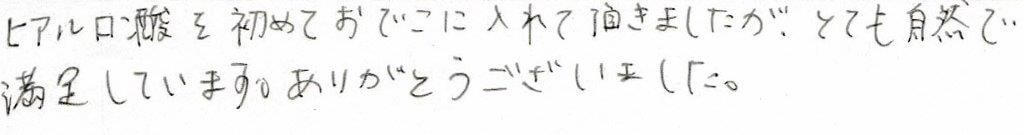 ヒアルロン酸を初めておでこに入れて頂きましたが、とても自然で
満足しています。ありがとうございました。